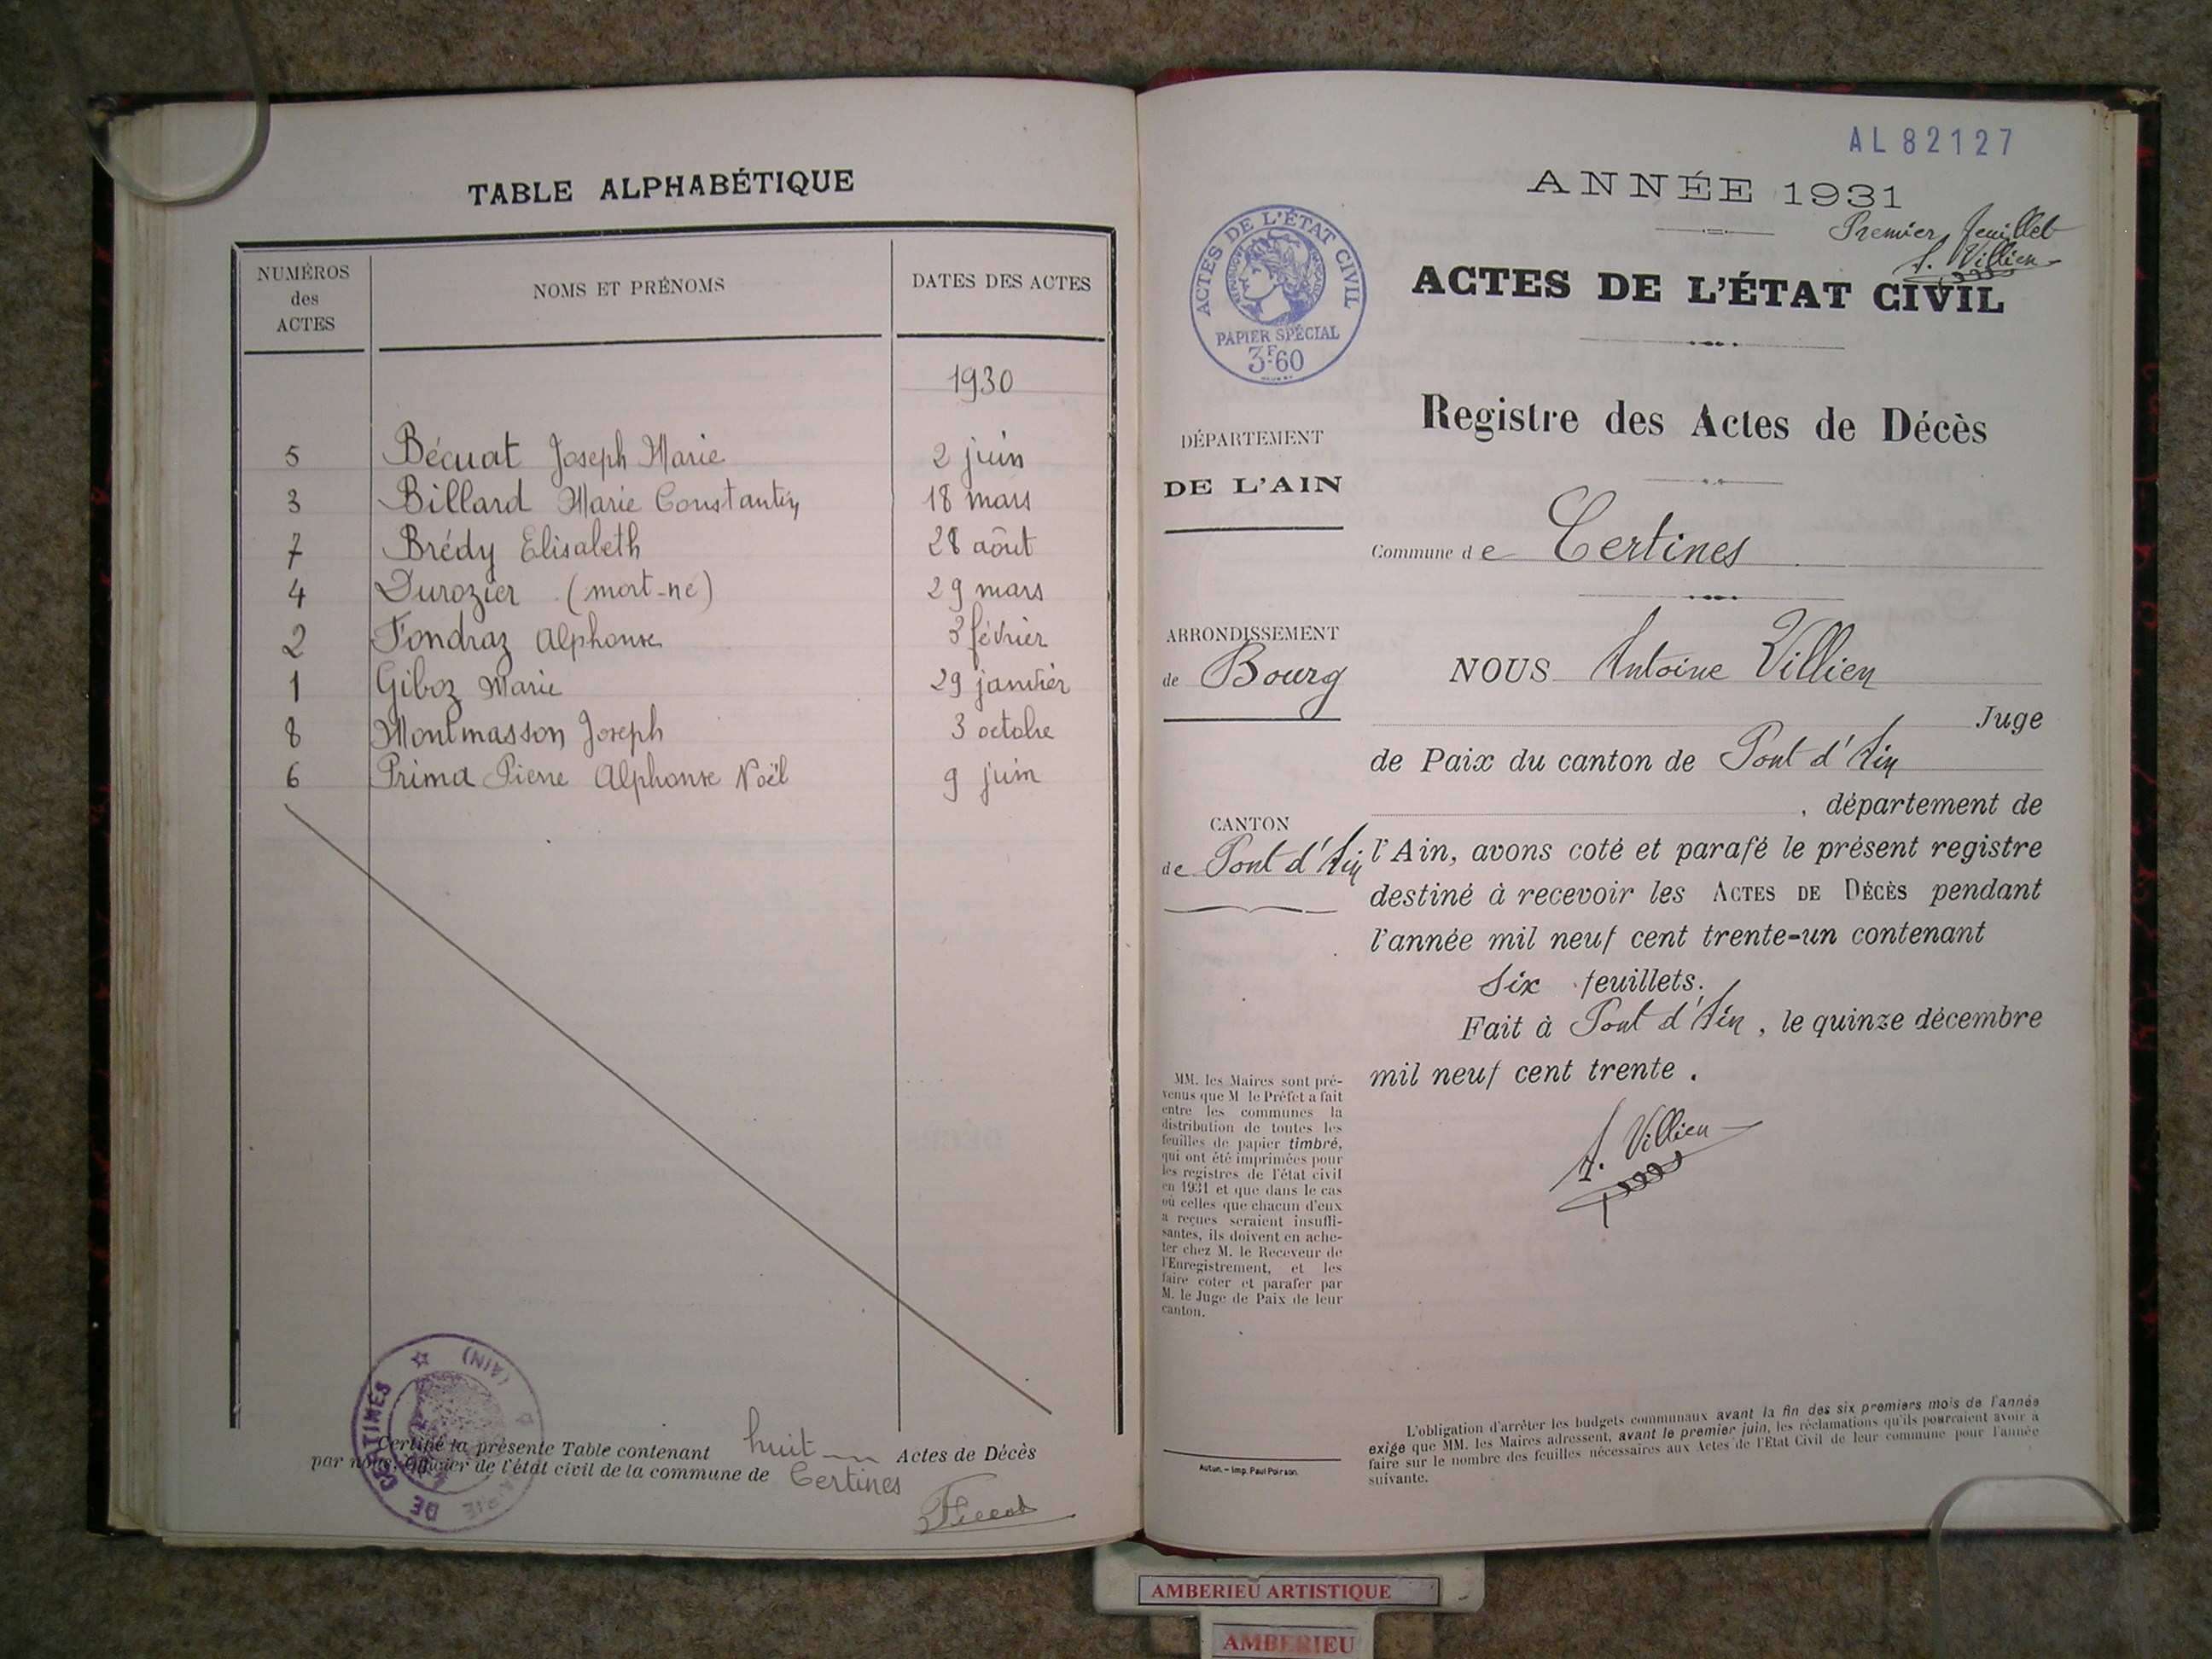 TABLE ALPHABÉTIQUE
NUMÉROS des ACTES
NOMS ET PRÉNOMS
DATES DES ACTES
1930
5 Bécuat Joseph Marie 2 juin
3 Billard Marie Constantin 18 mars
7 Brédy Elisabeth 28 août
4 Durozier (mort-né) 29 mars
2 Fondraz Alphonse 3 février
1 Giboz Marie 29 janvier
8 Montmasson Joseph 3 octobre
6 Prima Pierre Alphonse Noël 9 juin
Certifié la présente Table contenant huit Actes de Décès
par nous, Officier de l'état civil de la commune de Certines
MAIRIE DE CERTINES (AIN)
AL 82127
ANNÉE 1931
Premier feuillet
A. Villien
ACTES DE L'ÉTAT CIVIL
RÉPUBLIQUE FRANÇAISE
PAPIER SPÉCIAL
3F60
ACTES DE L'ÉTAT CIVIL
Registre des Actes de Décès
DÉPARTEMENT
DE L'AIN
Commune de Certines
ARRONDISSEMENT
de Bourg
NOUS Antoine Villien
Juge
de Paix du canton de Pont d'Ain
, département de
CANTON
de Pont d'Ain
l'Ain, avons coté et parafé le présent registre
destiné à recevoir les ACTES DE DÉCÈS pendant
l'année mil neuf cent trente-un contenant
Six feuillets.
Fait à Pont d'Ain, le quinze décembre
mil neuf cent trente.
A. Villien
MM. les Maires sont pré-
venus que M le Préfet a fait
entre les communes la
distribution de toutes les
feuilles de papier timbré,
qui ont été imprimées pour
les registres de l'état civil
en 1931 et que dans le cas
où celles que chacun d'eux
a reçues seraient insuffi-
santes, ils doivent en ache-
ter chez M. le Receveur de
l'Enregistrement, et les
faire coter et parafer par
M. le Juge de Paix de leur
canton.
Autun. – Imp. Paul Poirson.
L'obligation d'arrêter les budgets communaux avant la fin des six premiers mois de l'année
exige que MM. les Maires adressent, avant le premier juin, les réclamations qu'ils pourraient avoir à
faire sur le nombre des feuilles nécessaires aux Actes de l'État Civil de leur commune pour l'année
suivante.
AMBERIEU ARTISTIQUE
AMBERIEU